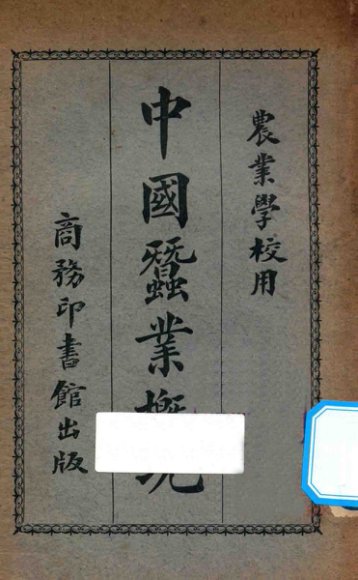 農業學校用
中國蠶業概況
商務印書館出版